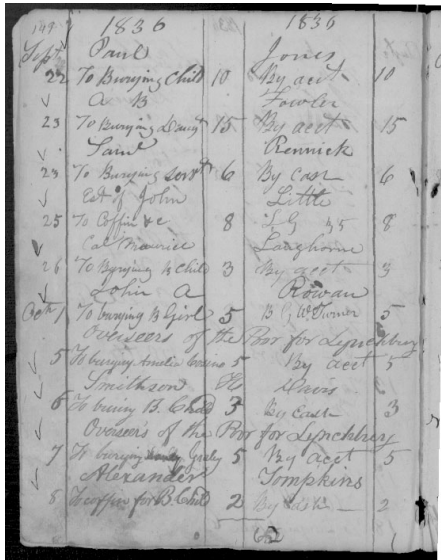 149 1836 1836
Sept Paul Jones
22 To Burying Child 10 By acct 10
A B Fowler
23 To Burying Daugt 15 By acct 15
Saml Rennick
23 To Burying Servt 6 By Cash 6
Est of John Little
25 To Coffin &c 8 L G 8
Maurice Langhorne
26 To Burying B Child 3 By acct 3
John A Rowan
Octr 1 To burying B Girl 5 B G W Turner 5
Overseers of the Poor for Lynchburg
5 To burying Amelia 5 By acct 5
Smithson Davis
6 To burying B. Child 3 By Cash 3
Overseers of the Poor for Lynchburg
7 To burying 5 By acct 5
Alexander Tompkins
8 To coffin for B. Child 2 By Cash 2
62